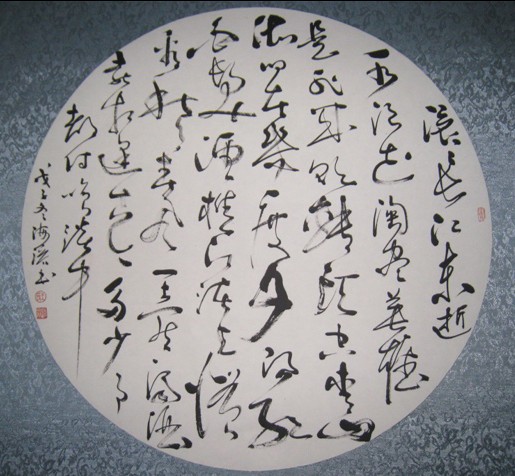 滚长江东逝
水浪花淘尽英雄
是非成败转头空青山
依旧在几度夕阳红
白发渔樵江渚上惯
看秋月春风一壶浊酒
喜相逢古今多少事
都付笑谈中
戊子冬海书